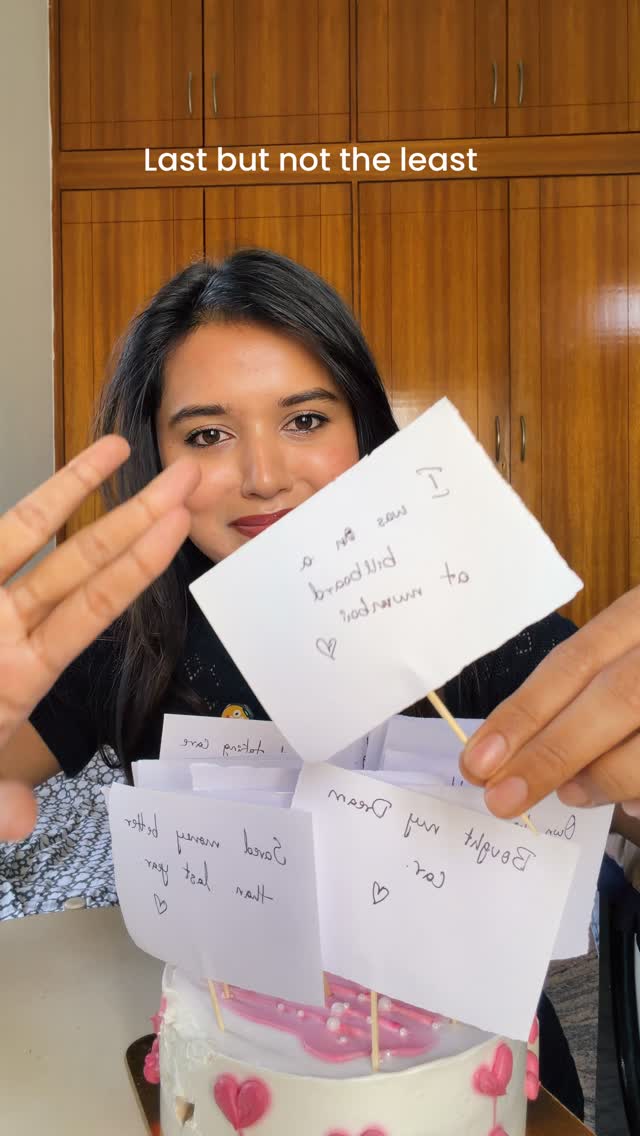 Last but not the least
I
was on a
billboard
at mumbai
taking care
Saved money better
than last year
Bought my Dream
Car.
Own